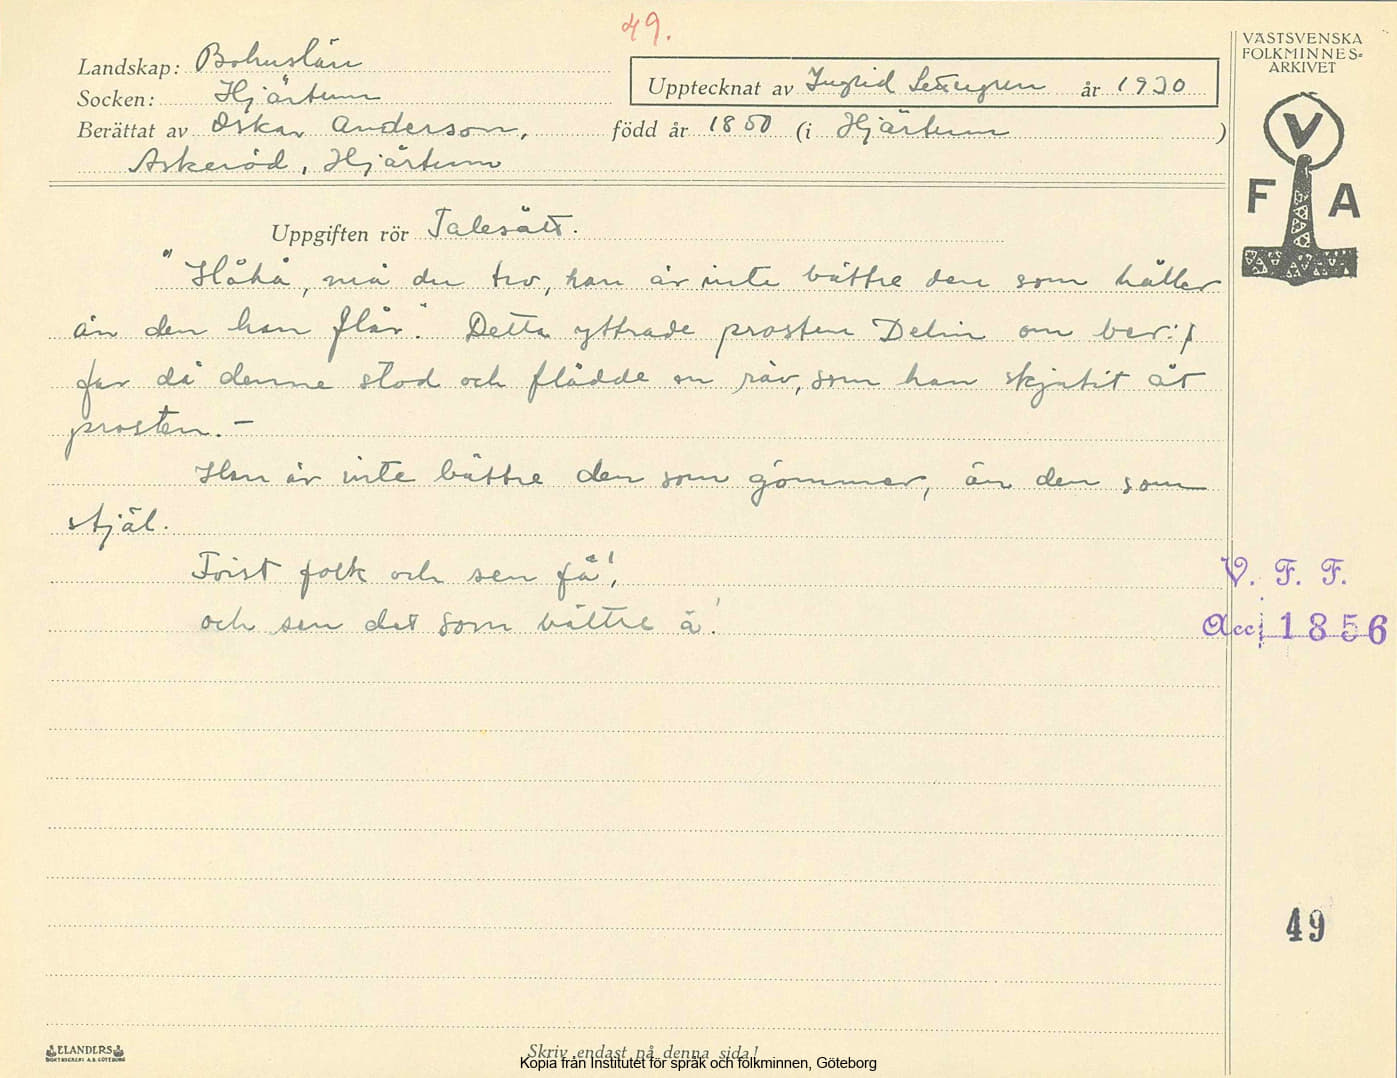 49.
VÄSTSVENSKA
FOLKMINNES=
ARKIVET
Landskap: Bohuslän
Socken: Hjärtum
Upptecknat av Ingrid år 1930
Berättat av Oskar Anderson, född år 1850 (i Hjärtum )
Askeröd, Hjärtum
V
F A
Uppgiften rör Talesätt.
"Håhå, må du tro, han är inte bättre den som håller
än den han flår". Detta yttrade prosten Delin om ber:s
far då denne stod och flådde en räv, som han skjutit åt
prosten. –
Han är inte bättre den som gömmer, än den som
stjäl.
Först folk och sen fä!,
och sen det som bättre ä!
V. F. F.
Acc: 1856
49
ELANDERS
BOKTRYCKERI A.B. GÖTEBORG
Skriv endast på denna sida!
Kopia från Institutet för språk och folkminnen, Göteborg